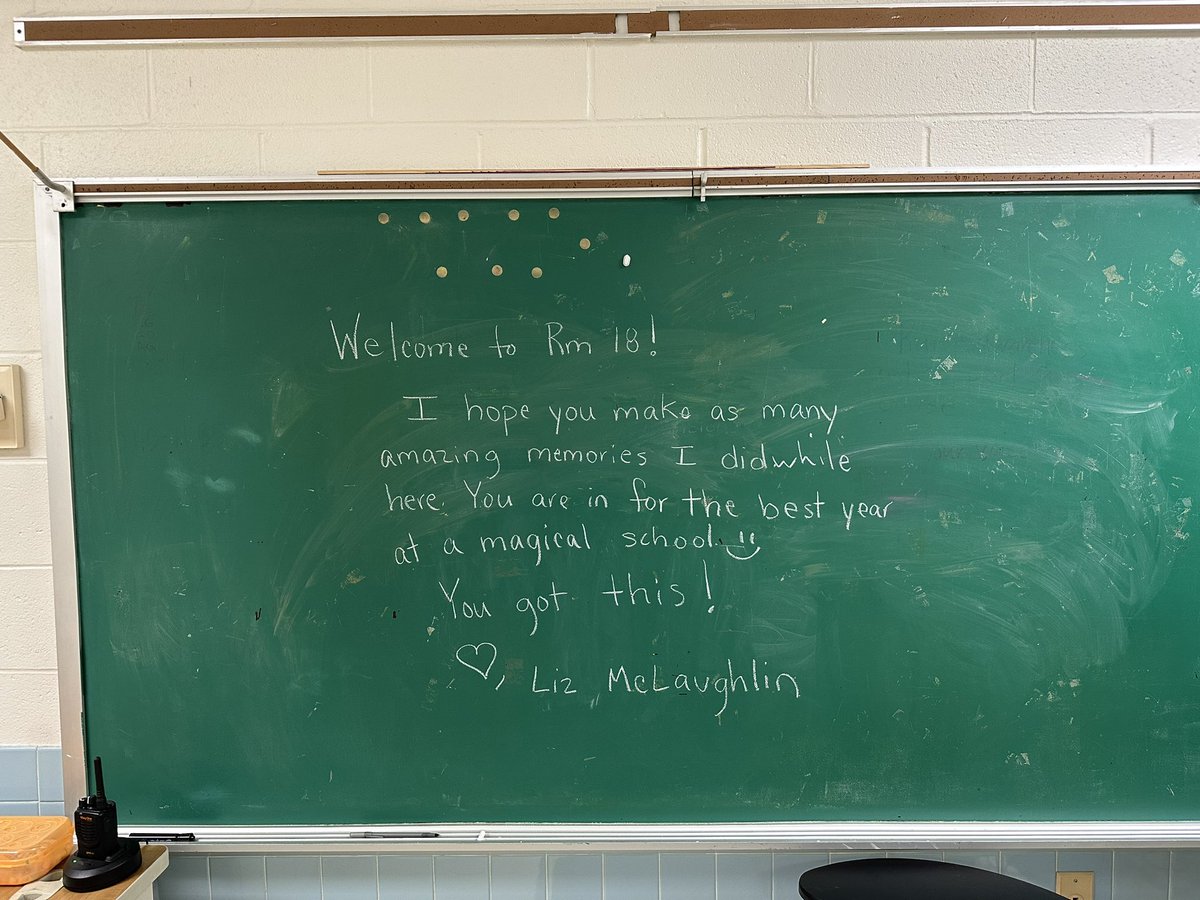 Welcome to Rm 18!
I hope you make as many
amazing memories I did while
here. You are in for the best year
at a magical school.
You got this!
♡, Liz McLaughlin